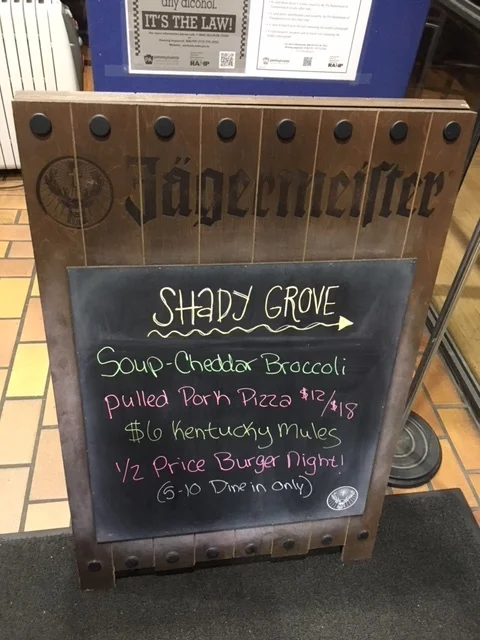 any alcohol.
IT'S THE LAW!
Jägermeister
SHADY GROVE
Soup-Cheddar Broccoli
pulled Pork Pizza $12/$18
$6 Kentucky Mules
1/2 Price Burger Night!
(5-10 Dine in only)